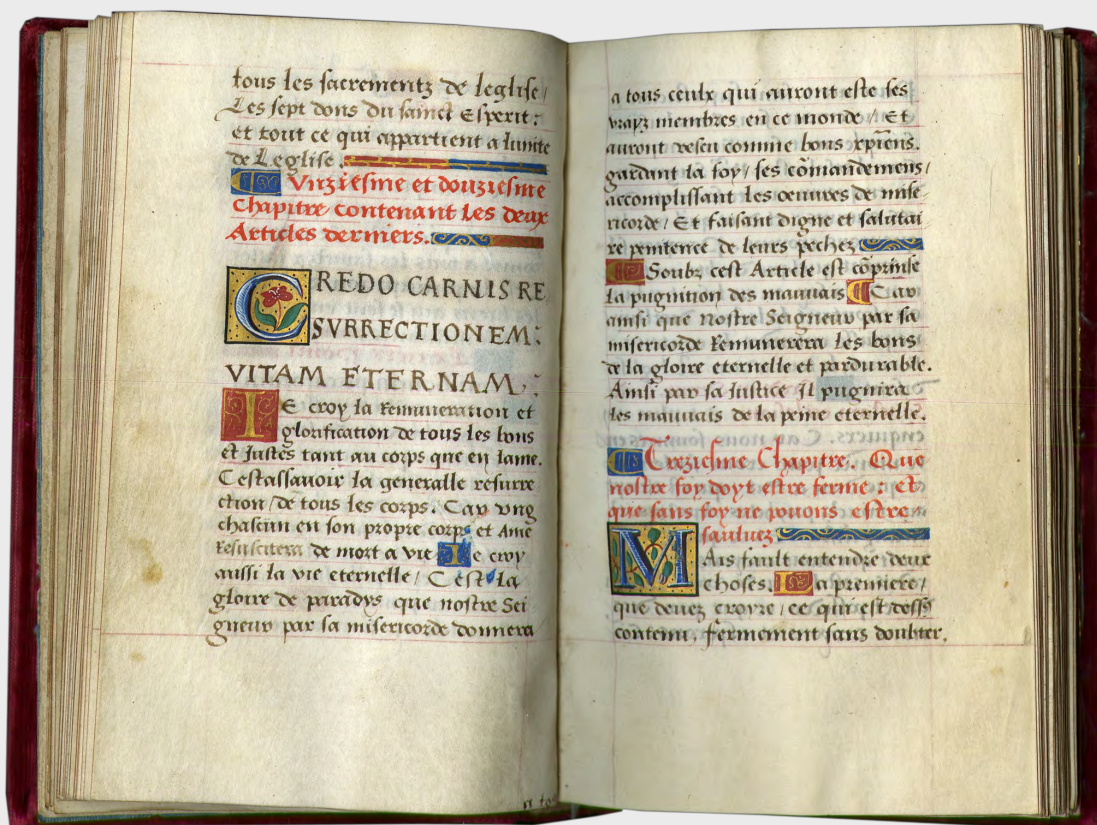 tous les sacrementz de leglise /
Les sept dons du sainct Esperit :
et tout ce qui appartient a lunite
de Leglise .
Vnziesme et douziesme
Chapitre contenant les deux
Articles derniers .
CREDO CARNIS RE
SVRRECTIONEM :
VITAM ETERNAM .
IE croy la Remuneration et
glorification de tous les bons
et Iustes tant au corps que en lame .
Cestassauoir la generalle resurre
ction / de tous les corps . Car vng
chascun en son propre corps et Ame
Resuscitera de mort a vie Ie croy
aussi la vie eternelle / Cest la
gloire de paradys que nostre Sei
gneur par sa misericorde donnera
a tou
a tous ceulx qui auront este ses
vrayz membres en ce monde / Et
auront vescu comme bons xp̄iens .
gardant la foy / ses cōmandemens /
accomplissant les oeuures de mise
ricorde / Et faisant digne et salutai
re penitence de leurs pechez
Soubz cest Article est cōprinse
la pugnition des mauuais Car
ainsi que nostre Seigneur par sa
misericorde Remunerera les bons
de la gloire eternelle et pardurable .
Ainsi par sa Iustice Il pugnira
les mauuais de la peine eternelle .
Treziesme Chapitre . Que
nostre foy doyt estre ferme : et
que sans foy ne pouons estre
sauluez
MAis fault entendre deux
choses . La premiere /
que deuez croyre / ce qui est dessꝰ
contenu , fermement sans doubter .